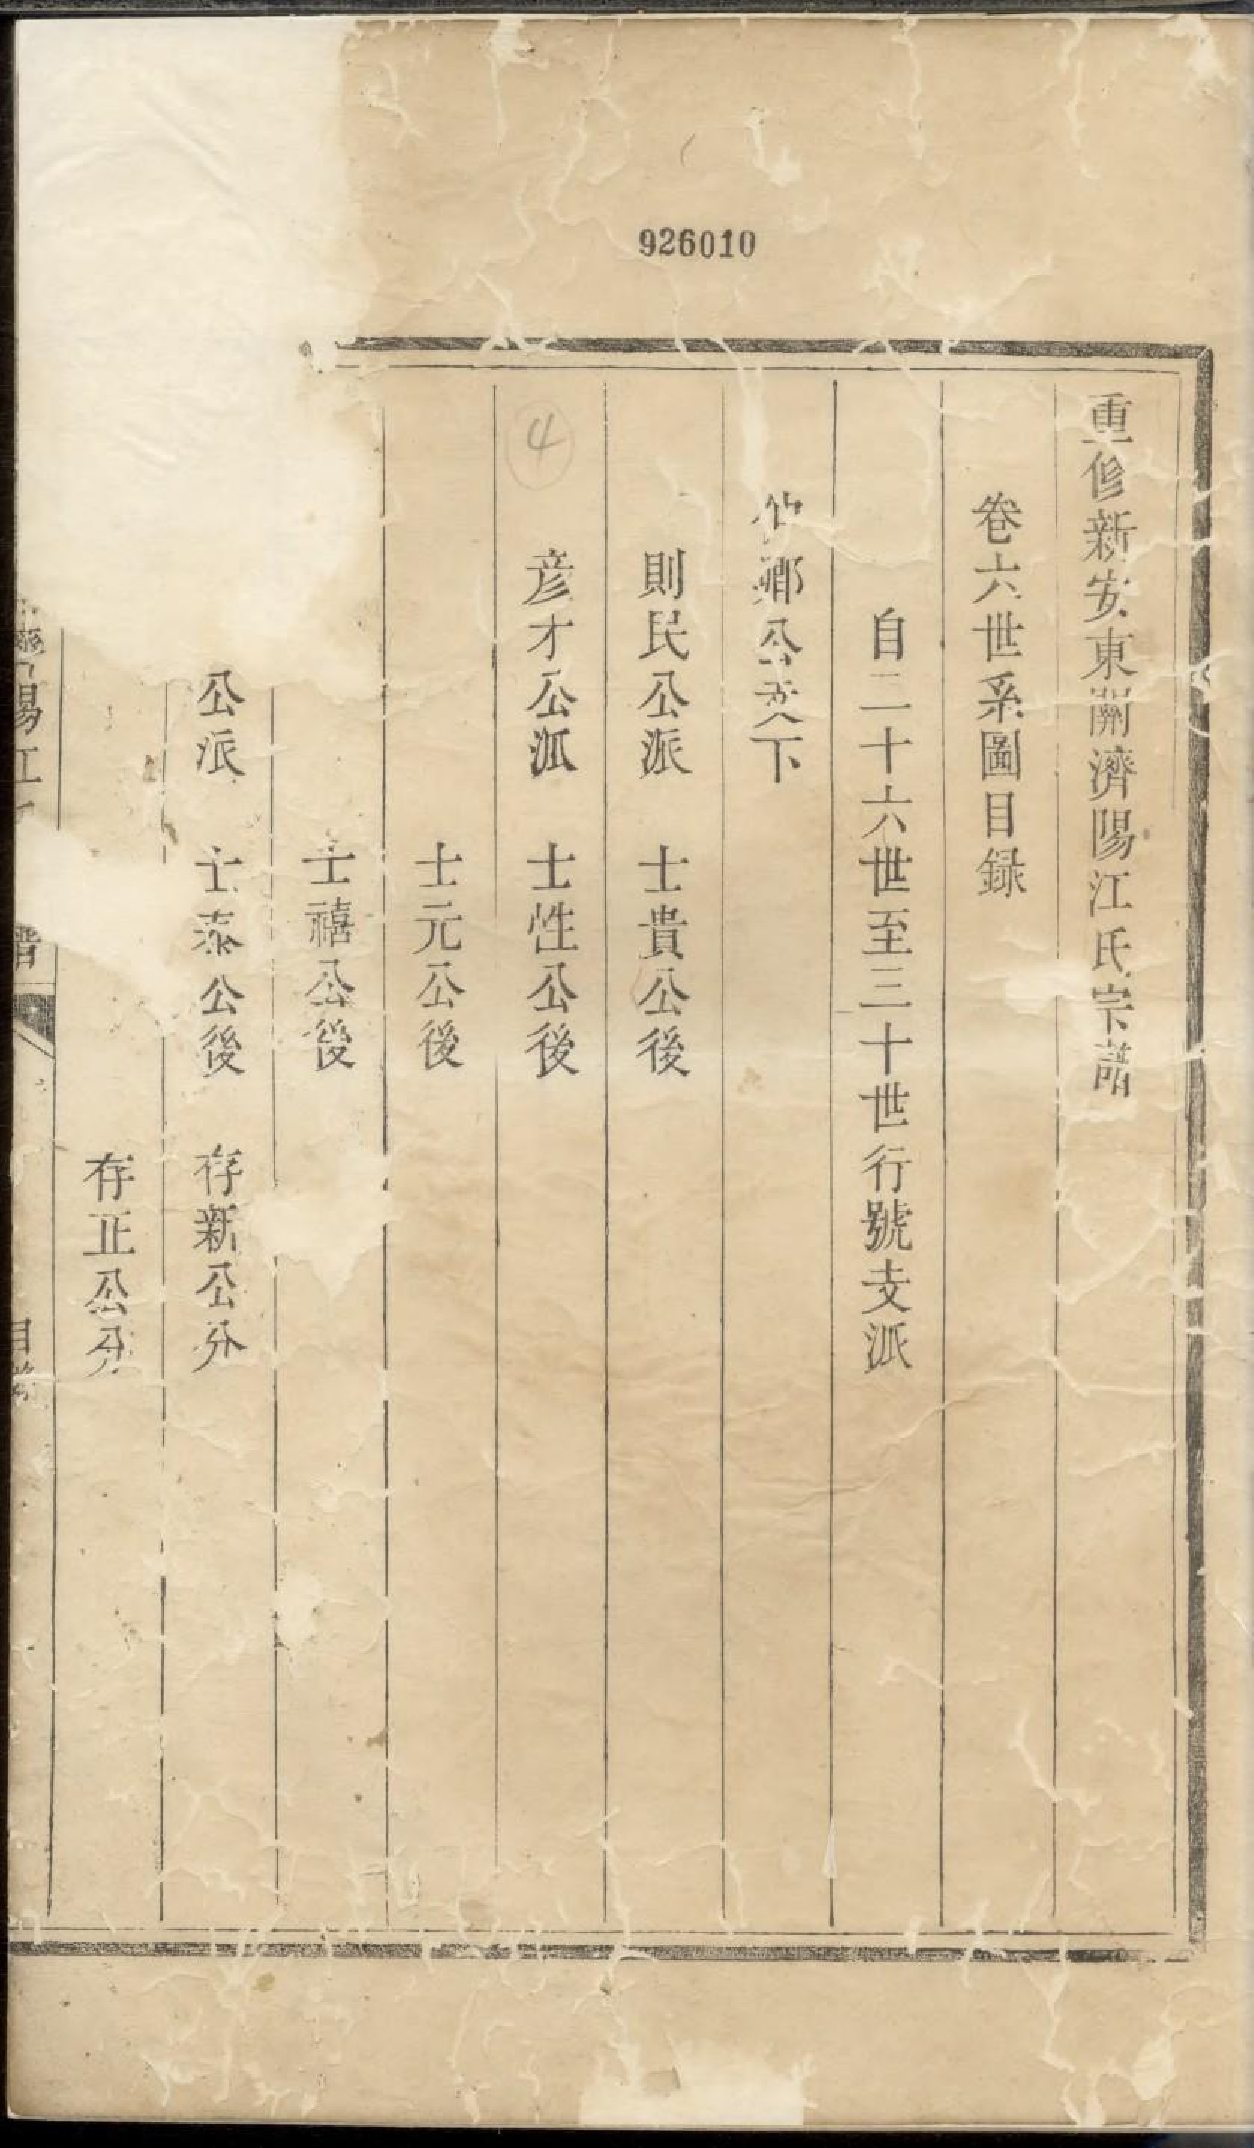 926010
重修新安東關濟陽江氏宗譜
卷六世系圖目録
自二十六世至三十世行號支派
鄉公支下
則民公派 士貴公後
4
彦才公派 士性公後
士元公後
士禧公後
公派 士泰公後 存新公分
存正公分
濟陽江
譜
目